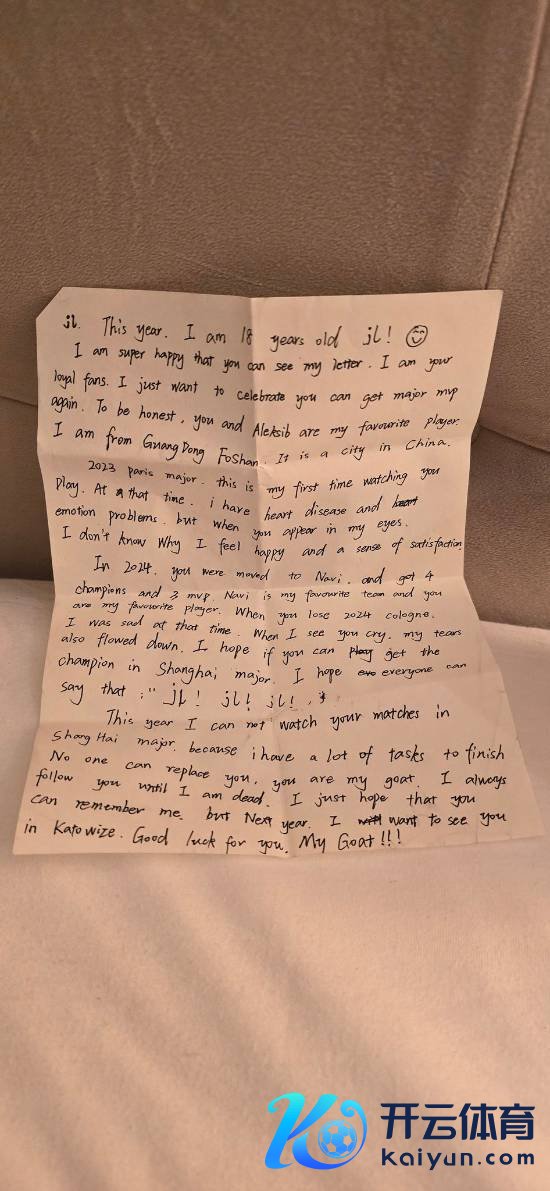 jL. This year. I am 18 years old jL! ☺
I am super happy that you can see my letter. I am your
loyal fans. I just want to celebrate you can get major mvp
again. To be honest, you and Aleksib are my favourite player.
I am from GuangDong FoShan. It is a city in China.
2023 paris major. this is my first time watching you
play. At that time. i have heart disease and heart
emotion problems. but when you appear in my eyes.
I don't know Why I feel happy and a sense of satisfaction
In 2024. you were moved to Navi. and got 4
champions and 3 mvp. Navi is my favourite team and you
are my favourite player. When you lose 2024 cologne.
I was sad at that time. When I see you cry. my tears
also flowed down. I hope if you can play get the
champion in Shanghai major. I hope eve everyone can
say that :" jL! jL! jL! "
This year I can not watch your matches in
Shang Hai major. because i have a lot of tasks to finish
No one can replace you, you are my goat. I always
follow you until I am dead. I just hope that you
can remember me. but Next year. I want to see you
in Katowize. Good luck for you. My Goat!!!
开云体育
Kaiyun.com